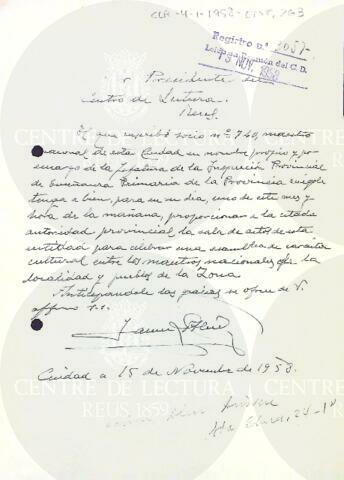 CLR-4-1-1958-
Registro n.º 2057-
13 NOV. 1958
Presidente del
Centro de Lectura.
Reus.
El que suscribe socio nº 740, maestro
nacional de esta Ciudad en nombre propio y por
encargo de la Jefatura de la Inspección Provincial
de Enseñanza Primaria de la Provincia ruégole
tenga a bien, para en su día, uno de este mes y
hora de la mañana, proporcionar a la citada
autoridad provincial, la sala de actos de esta
entidad para celebrar una asamblea de caracter
cultural entre los maestros nacionales de la
localidad y pueblos de la Zona.
Anticipandole las gracias se ofrece de V.
affmo s.s.
Ciudad a 15 de Noviembre de 1958.
CENTRE DE LECTURA
REUS 1859